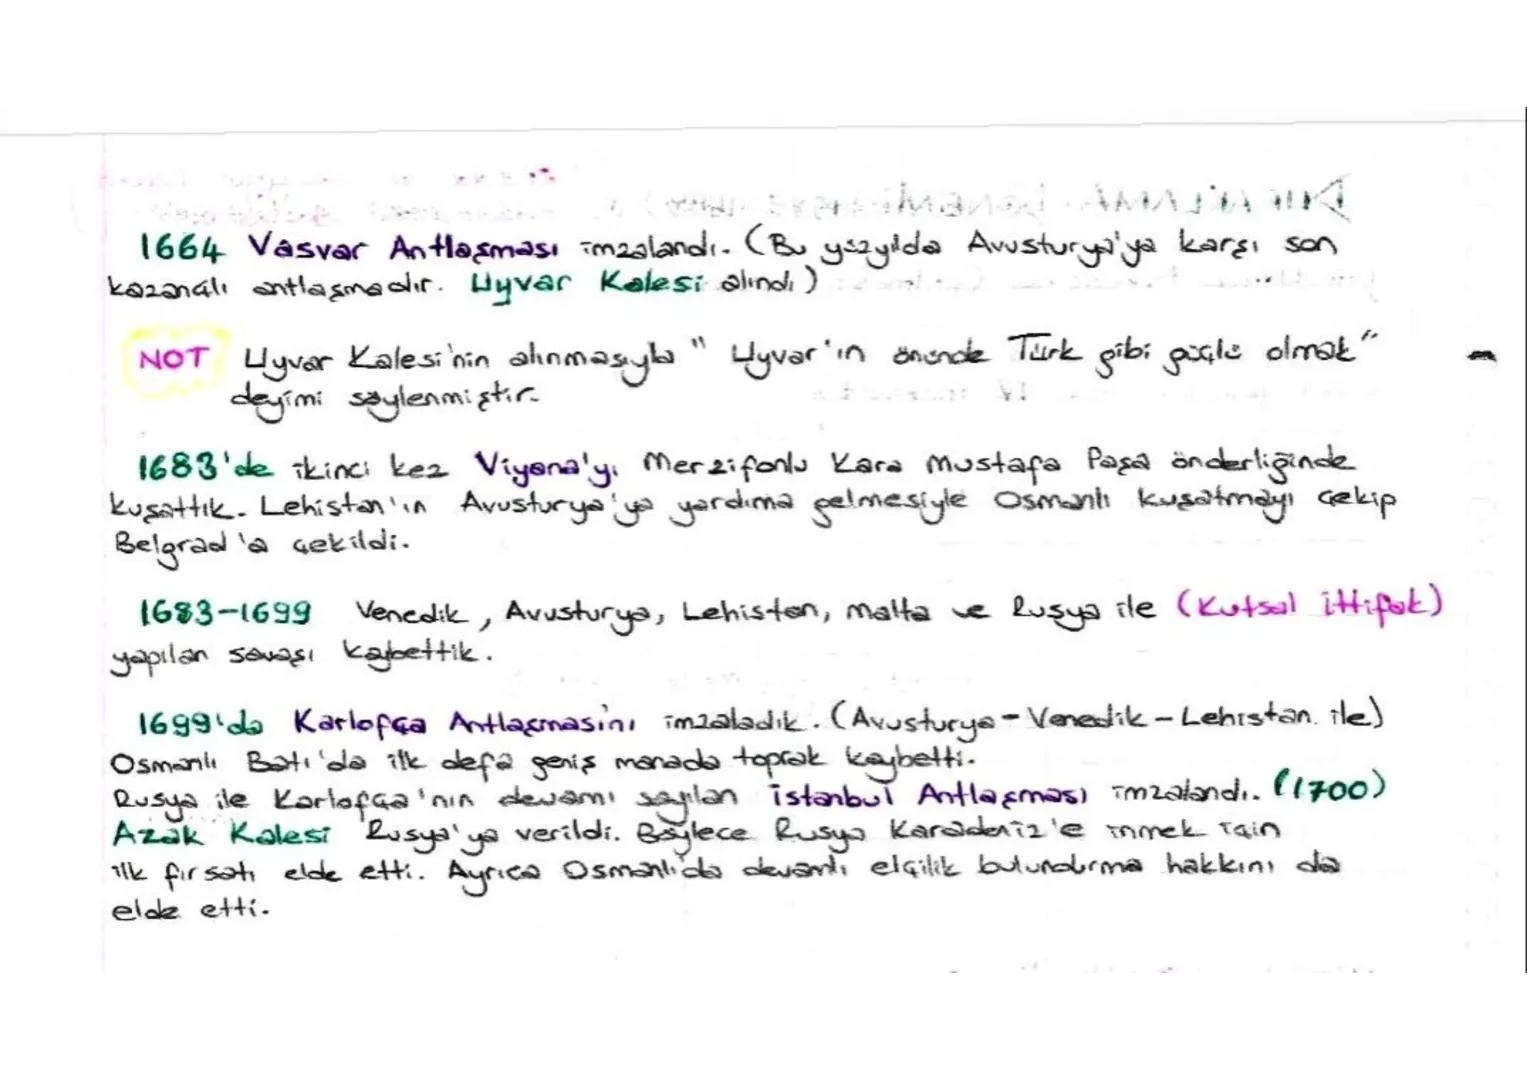 1664 Vasvar Antlaşması imzalandı. (Bu yüzyılda Avusturya'ya karşı son
kazançlı antlaşmadır. Uyvar Kalesi alındı)
NOT Uyvar Kalesi'nin alınmasıyla "Uyvar'ın önünde Türk gibi güçlü olmak"
deyimi söylenmiştir.
1683'de ikinci kez Viyana'yı Merzifonlu Kara Mustafa Paşa önderliğinde
kuşattık. Lehistan'ın Avusturya'ya yardıma gelmesiyle Osmanlı kuşatmayı çekip
Belgrad'a çekildi.
1683-1699 Venedik, Avusturya, Lehistan, Malta ve Rusya ile (Kutsal İttifak)
yapılan savaşı kaybettik.
1699'da Karlofça Antlaşmasini imzaladık. (Avusturya-Venedik-Lehistan ile)
Osmanlı Batı'da ilk defa geniş manada toprak kaybetti.
Rusya ile Karlofça'nın devamı sayılan İstanbul Antlaşması imzalandı. (1700)
Azak Kalesi Rusya'ya verildi. Böylece Rusya Karadeniz'e inmek için
ilk fırsatı elde etti. Ayrıca Osmanlı'da devamlı elçilik bulundurma hakkını da
elde etti.